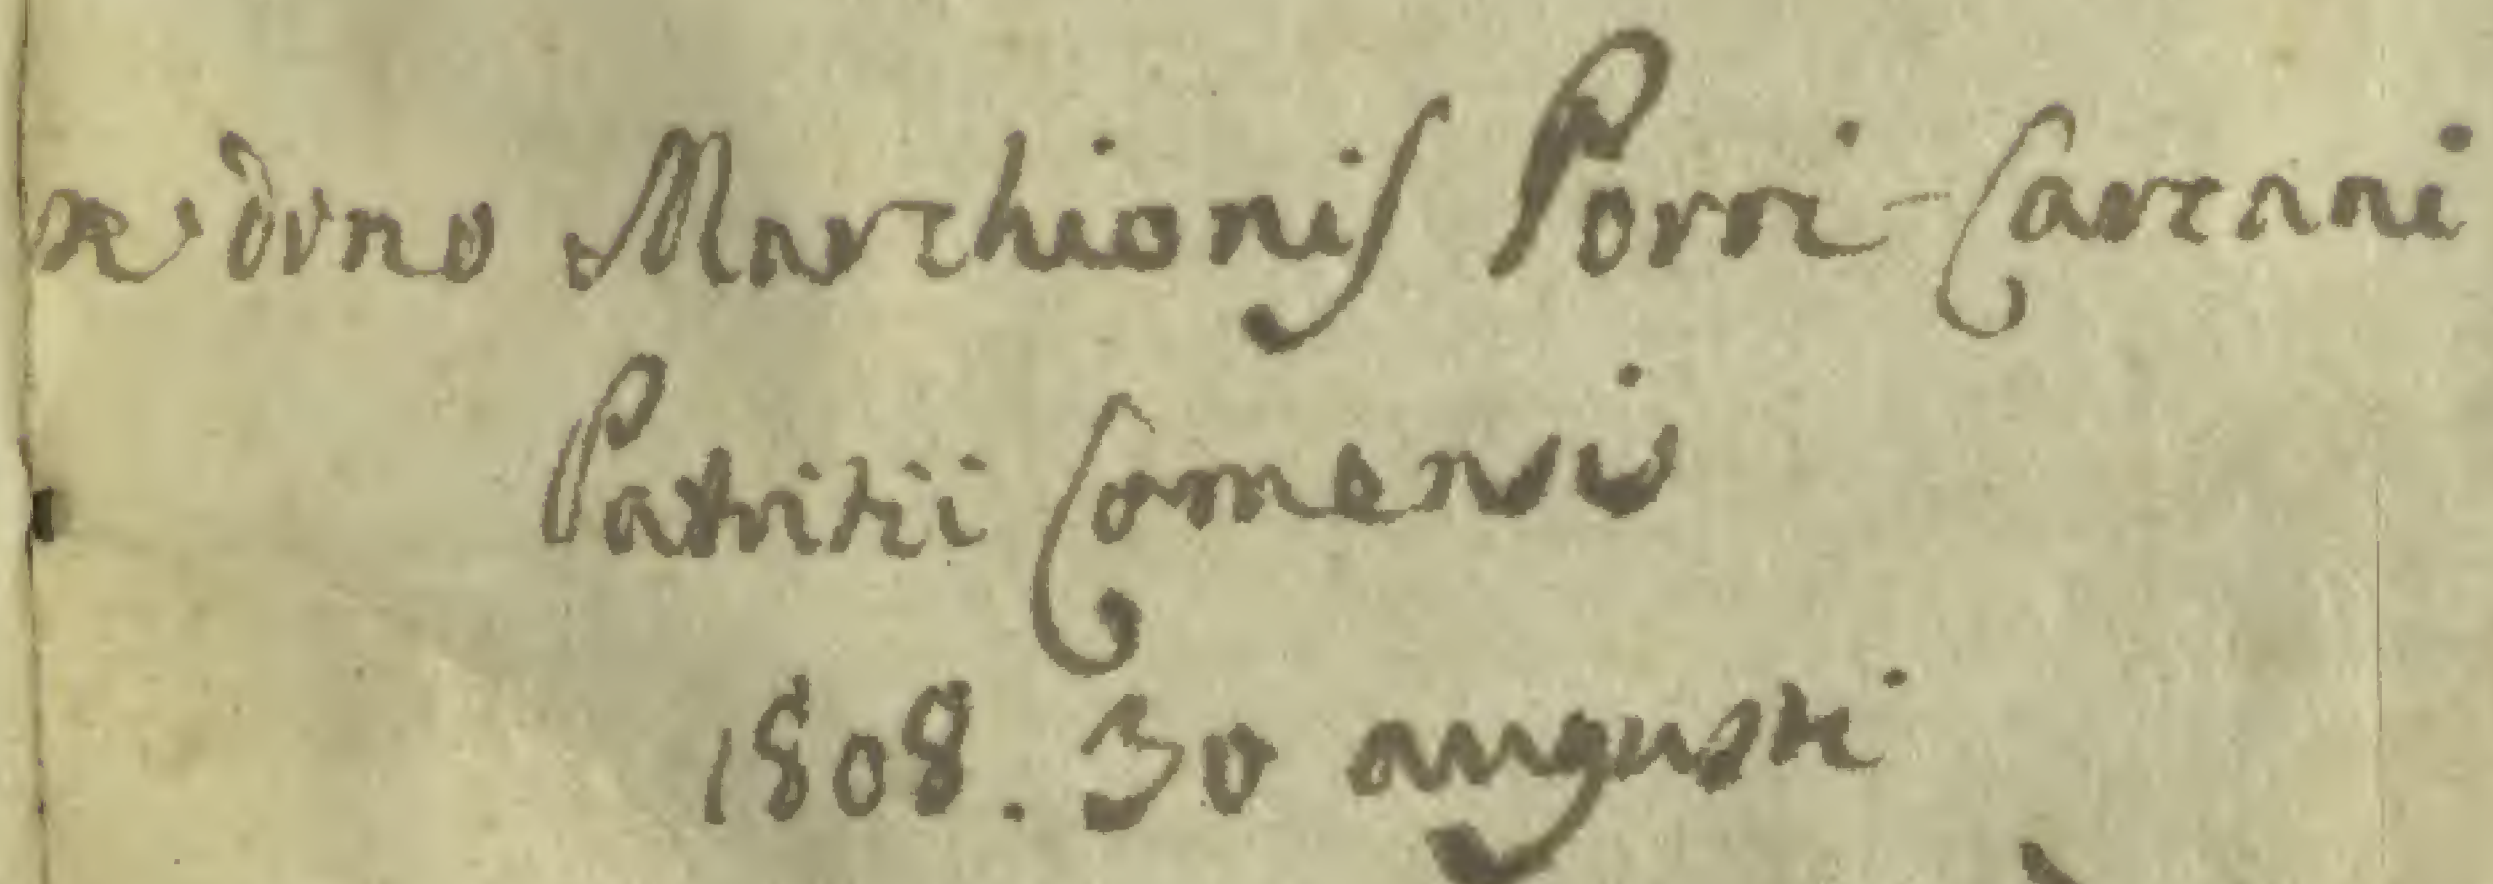 ex dono Marchionis Porri-Carcani
Patritii Comensis
1808. 30 augusti